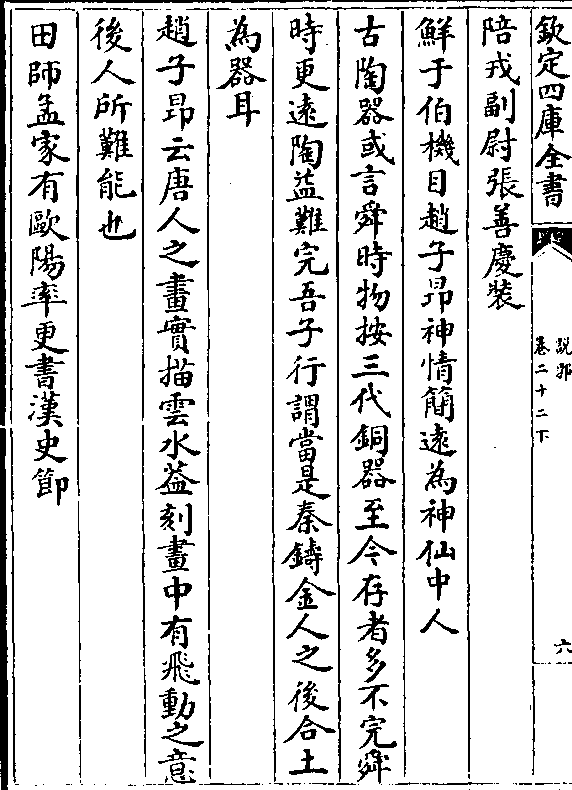 欽定四庫全書
說郛
卷二十二下
六
陪戎副尉張善慶裝
鮮于伯機目趙子昂神情簡遠為神仙中人
古陶器或言舜時物按三代銅器至今存者多不完舜
時更遠陶益難完吾子行謂當是秦鑄金人之後合土
為器耳
趙子昂云唐人之畫實描雲水益刻畫中有飛動之意
後人所難能也
田師孟家有歐陽率更書漢史節